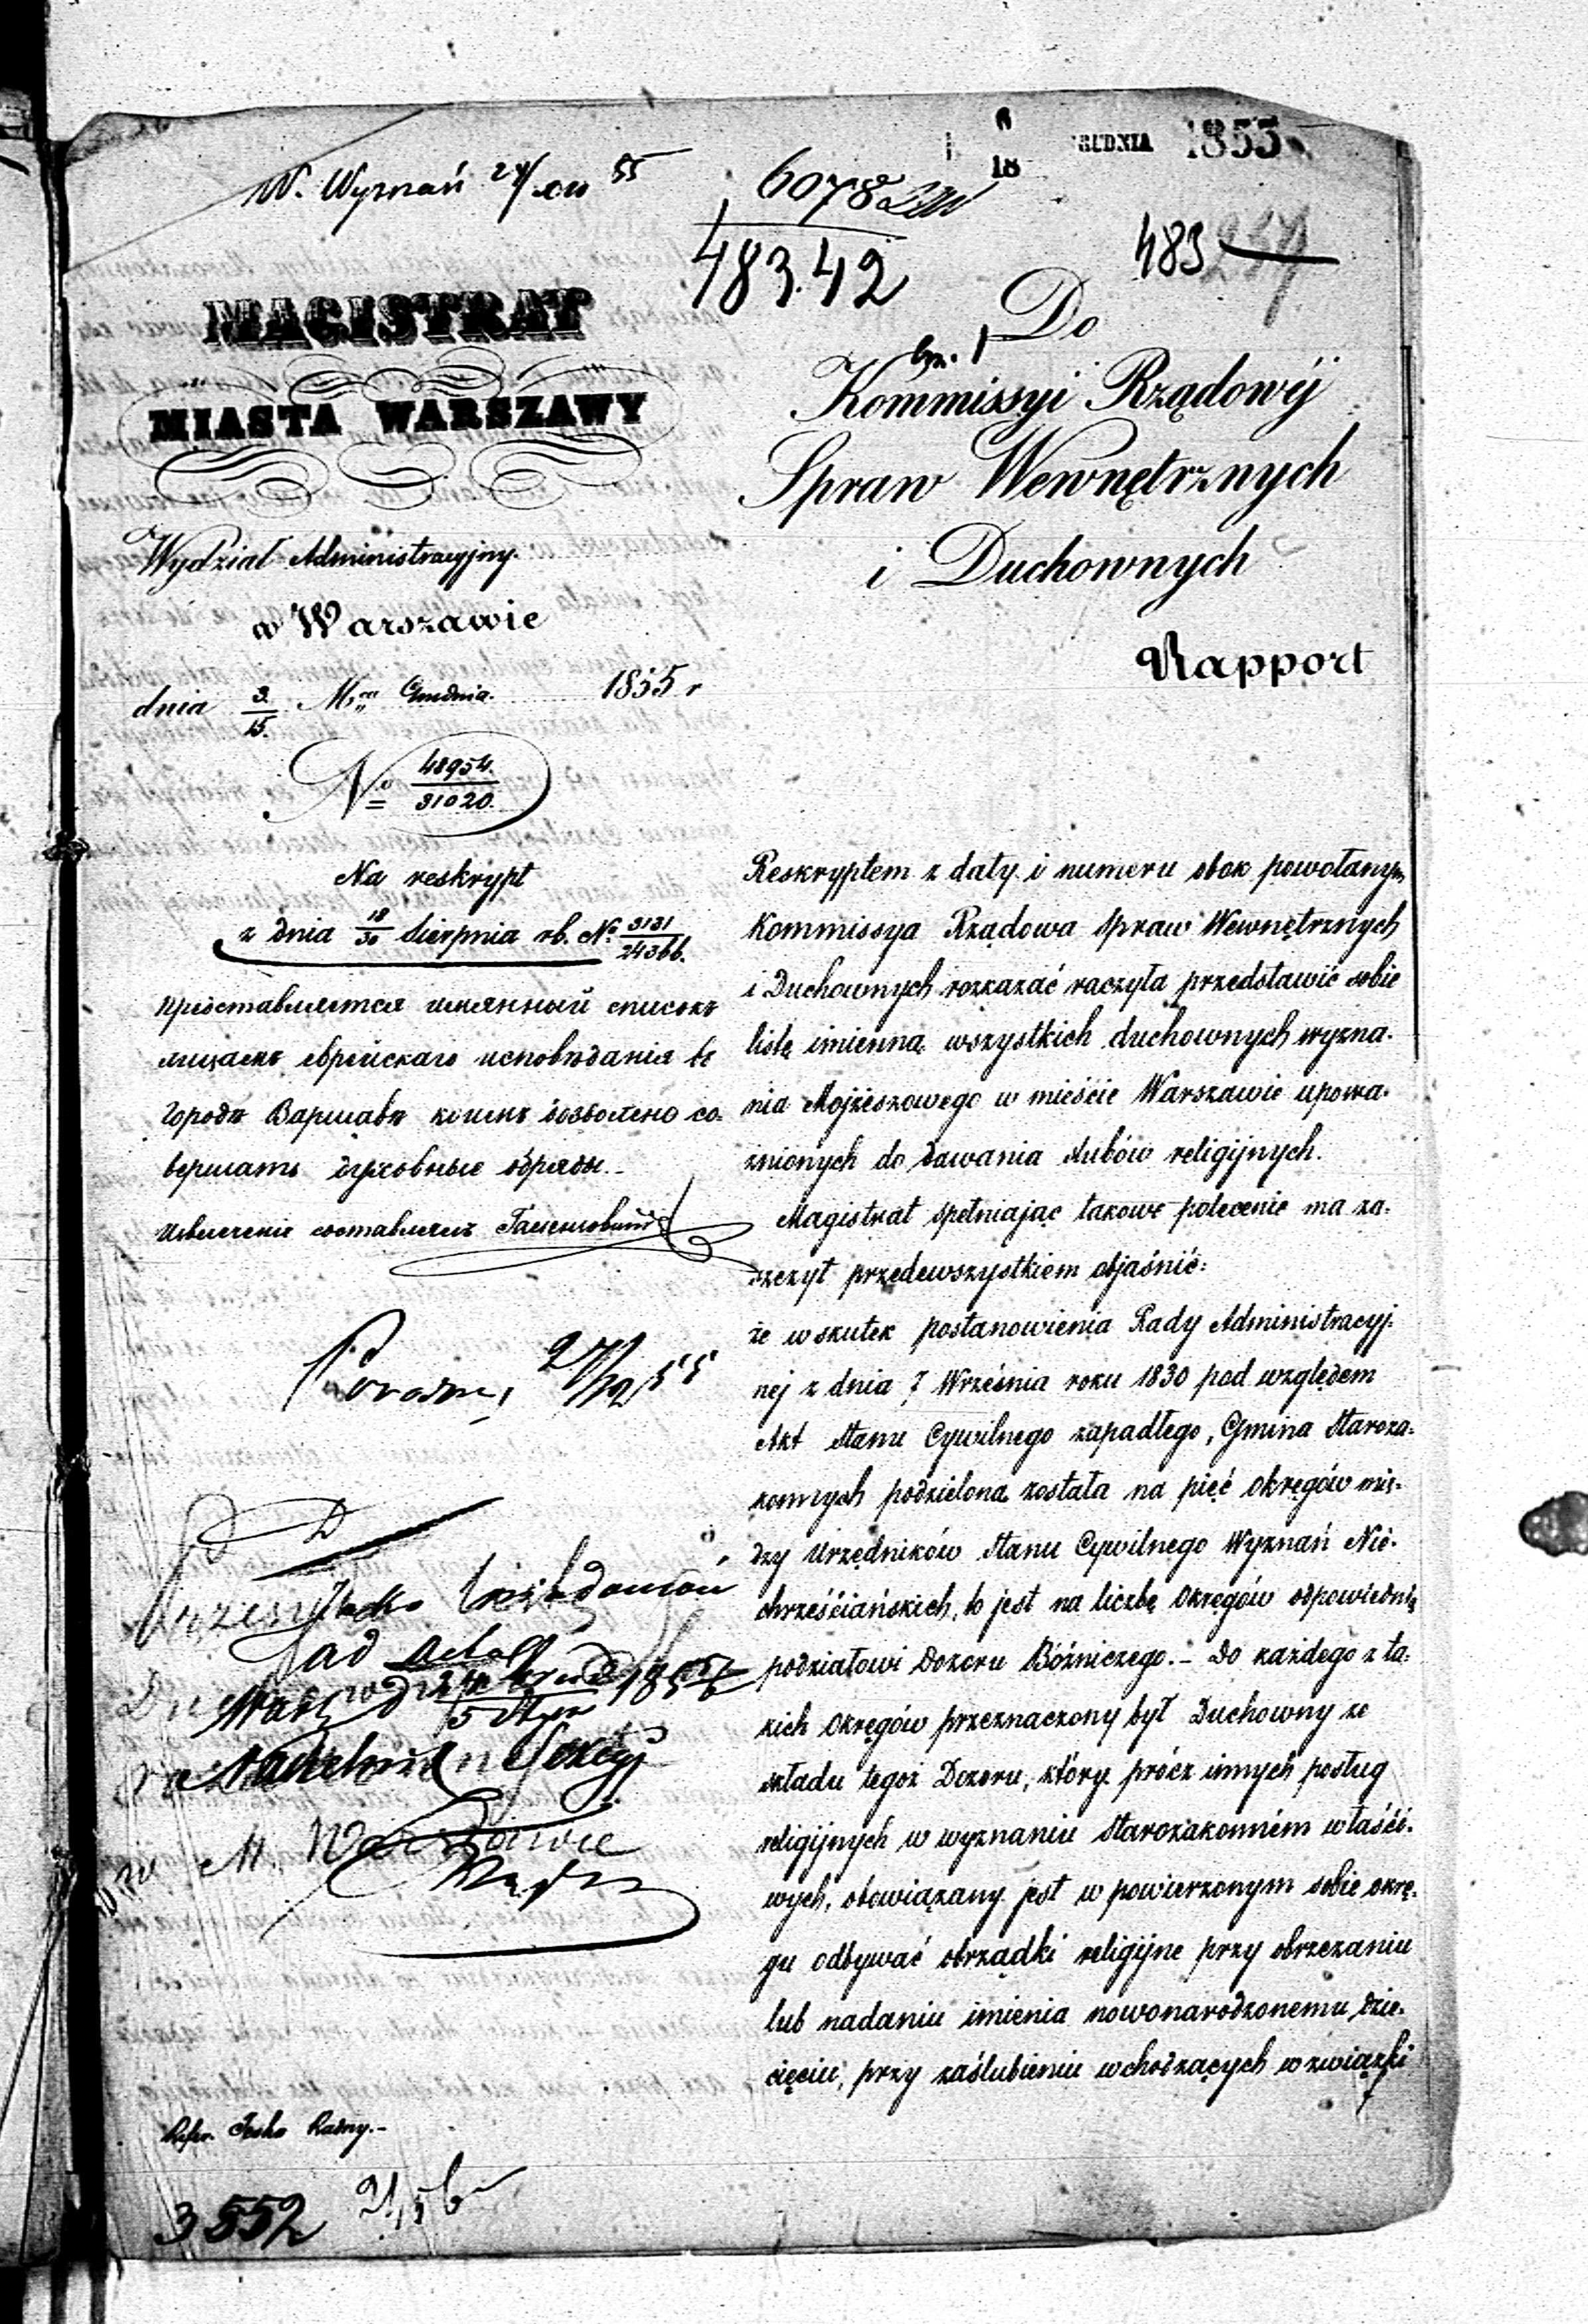 6
18
GRUDNIA 1855
W. Wyznań 24/XII 55
6078
483.42
483
257
MAGISTRAT
MIASTA WARSZAWY
Wydział Administracyjny.
w Warszawie
dnia 3./15. M-ca Grudnia. 1855 r
No 48954./31020.
Na reskrypt
z dnia 18/30 Sierpnia rb. No 3131/24366.
Представляется именный списокъ
лицамъ еврейскаго исповѣданія въ
городѣ Варшавѣ коимъ дозволено со-
вершать духовные обряды.-
Извлеченіе составлялъ
27/12 55
ad acta
Naczelnik Sekcyi
w M. Warszawie
Refer. Radny.-
3552
Do
Kommissyi Rządowéj
Spraw Wewnętrznych
i Duchownych
Rapport
Reskryptem z daty i numeru obok powołanym
Kommissya Rządowa Spraw Wewnętrznych
i Duchownych rozkazać raczyła przedstawić sobie
listę imienną wszystkich duchownych wyzna-
nia Mojżeszowego w mieście Warszawie upowa-
żnionych do dawania ślubów religijnych.
Magistrat spełniając takowe polecenie ma za-
szczyt przedewszystkiem objaśnić:
że w skutek postanowienia Rady Administracyj-
nej z dnia 7 Września roku 1830 pod względem
Akt Stanu Cywilnego zapadłego, Gmina Staroza-
konnych podzielona została na pięć Okręgów mię-
dzy Urzędników Stanu Cywilnego Wyznań Nie-
chrześciańskich, to jest na liczbę Okręgów odpowiednią
podziałowi Dozoru Bóżniczego.- Do każdego z ta-
kich Okręgów przeznaczony był Duchowny ze
składu tegoż Dozoru, który prócz innych posług
religijnych w wyznaniu Starozakonném właści-
wych, obowiązany jest w powierzonym sobie okrę-
gu odbywać obrządki religijne przy obrzezaniu
lub nadaniu imienia nowonarodzonemu dzie-
cięciu, przy zaślubieniu wchodzących w związki